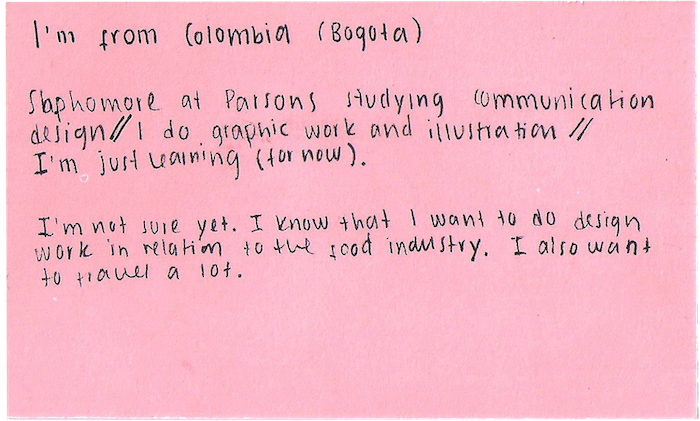 I'm from Colombia (Bogota)
Sophomore at Parsons studying communication
design// I do graphic work and illustration //
I'm just learning (for now).
I'm not sure yet. I know that I want to do design
work in relation to the food industry. I also want
to travel a lot.